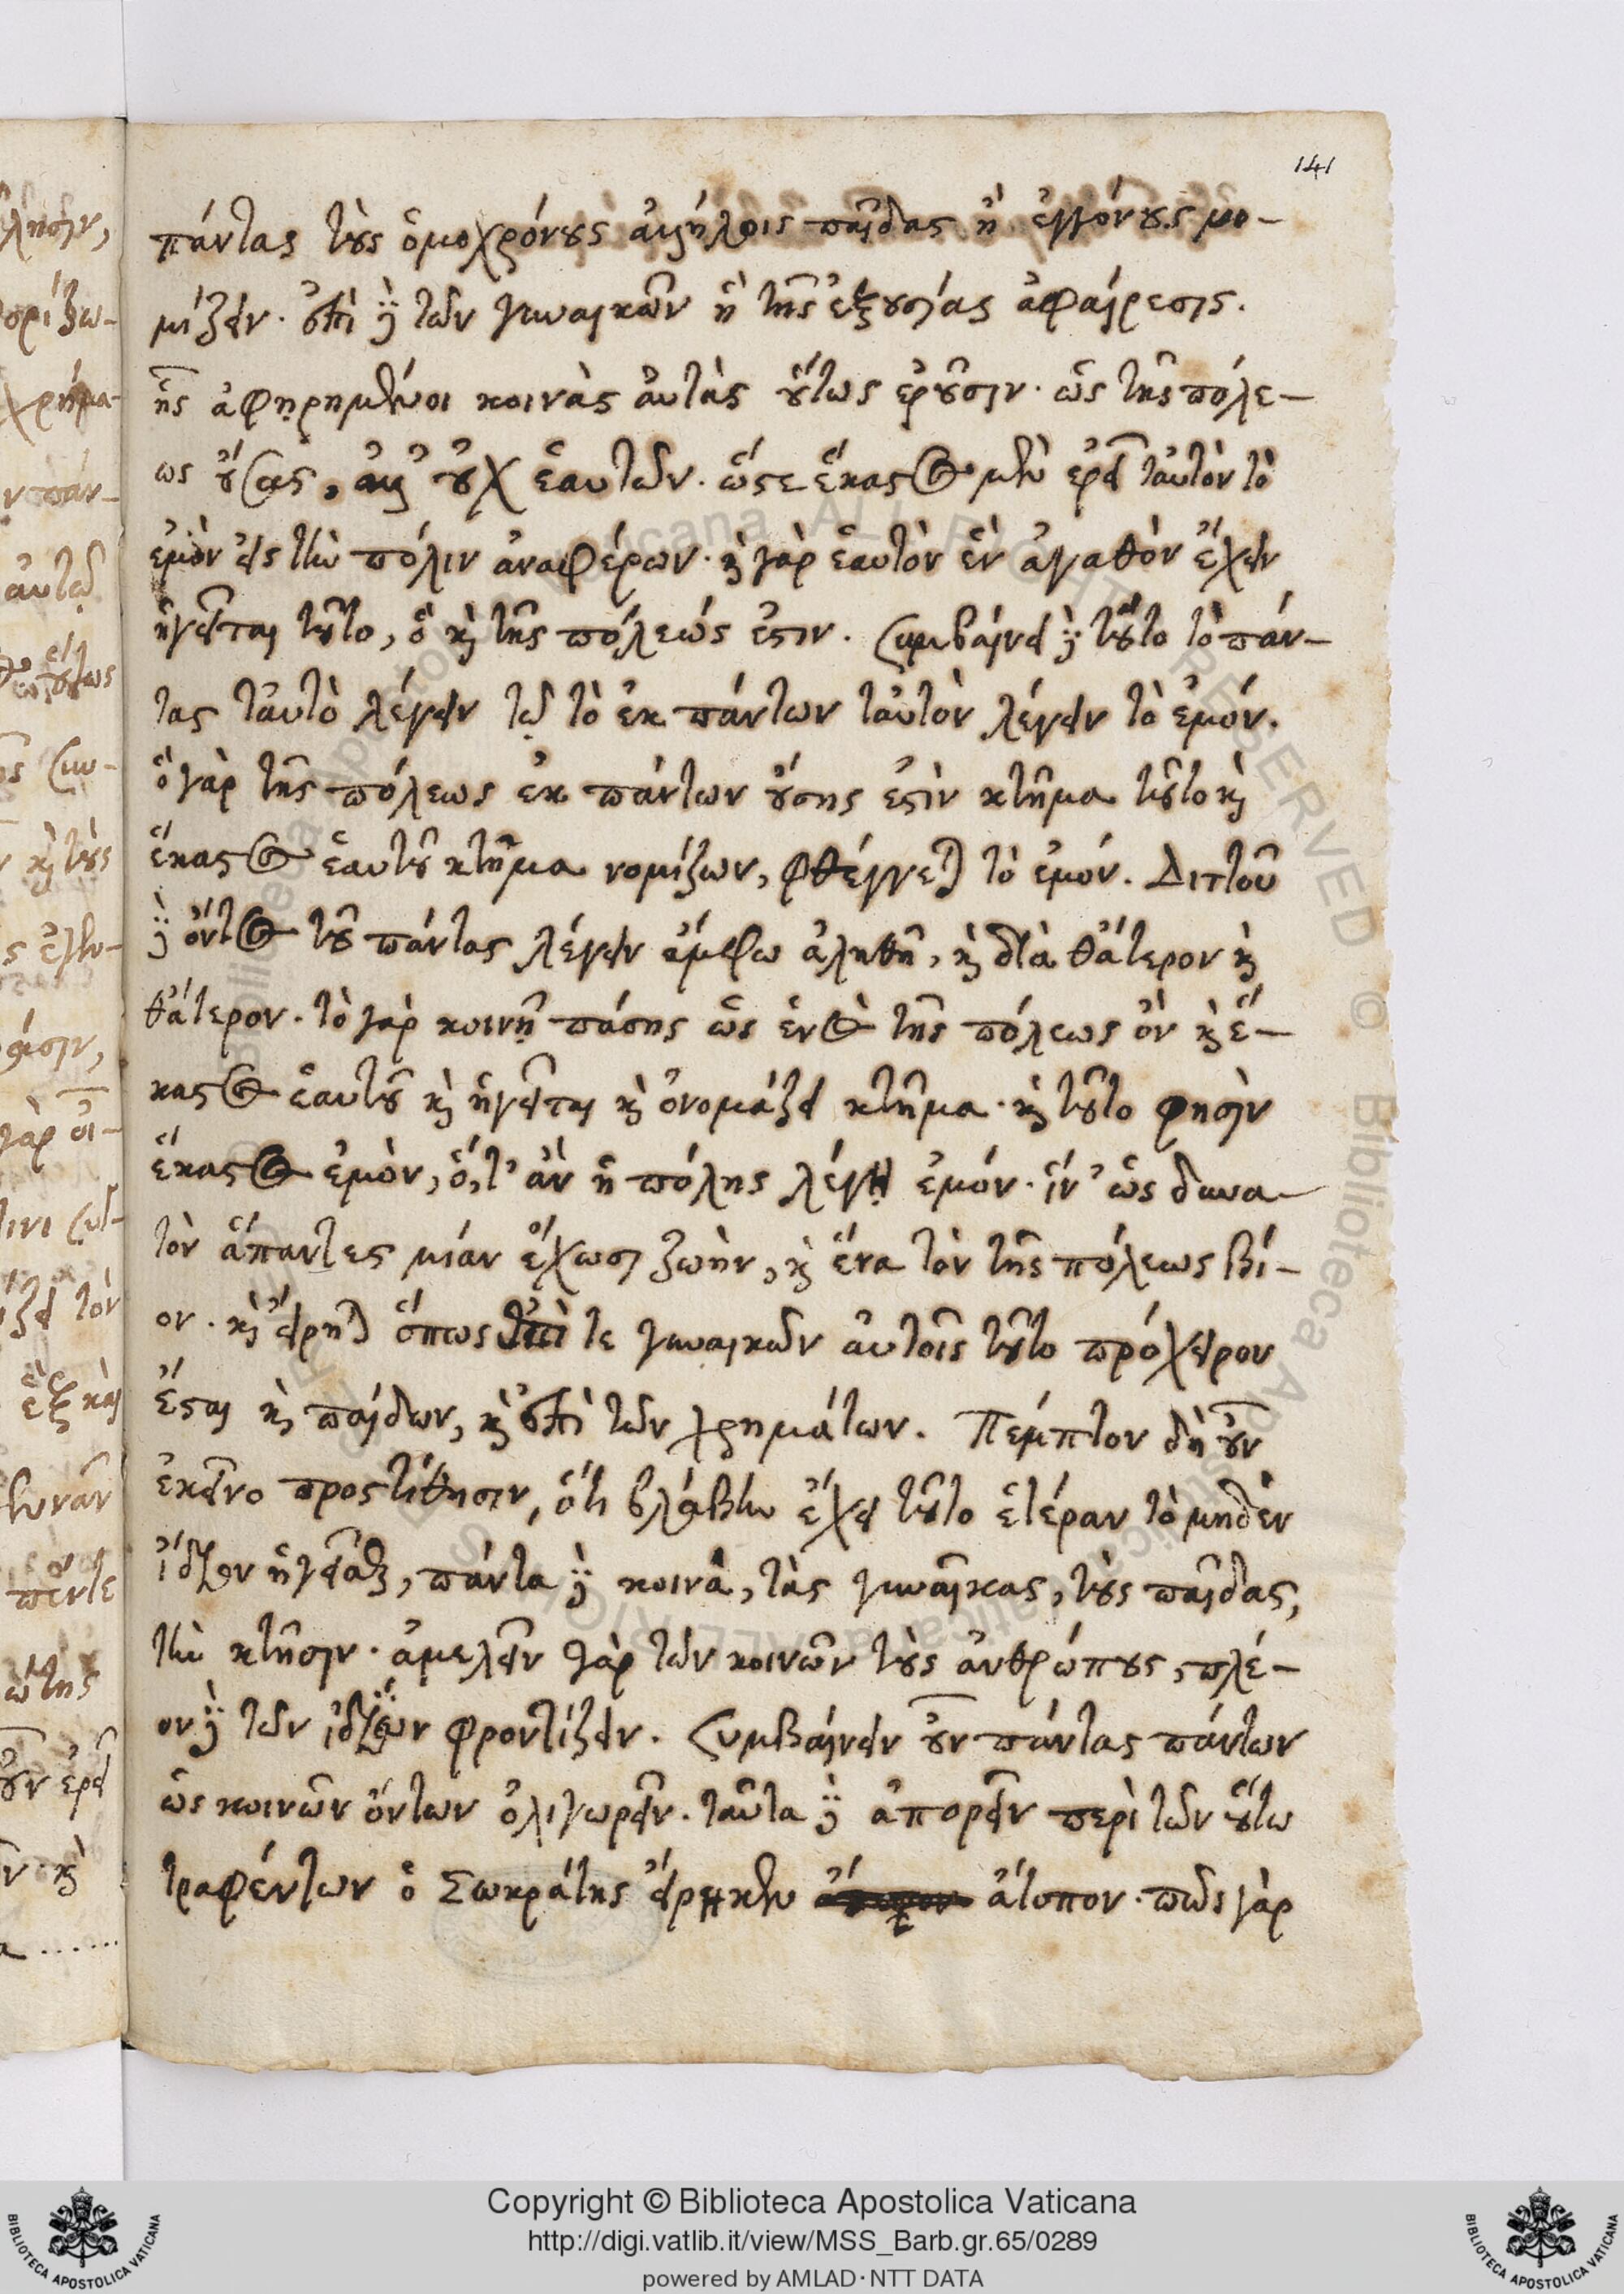 141
πάντας τοὺς ὁμοχρόνους ἀλλήλοις παῖδας ἢ ἐγγόνους νο-
μίζειν. ἐπὶ δὲ τῶν γυναικῶν ἡ τῆς ἐξουσίας ἀφαίρεσις.
ἧς ἀφῃρημένοι κοινὰς αὐτὰς οὕτως ἐροῦσιν. ὡς τῆς πόλε-
ως οὔσας, ἀλλ' οὐχ ἑαυτῶν. ὥστε ἕκαστος μὲν ἐρεῖ ταὐτὸν τὸ
ἐμὸν εἰς τὴν πόλιν ἀναφέρων. καὶ γὰρ ἑαυτὸν ἓν ἀγαθὸν ἔχειν
ἡγεῖται τοῦτο, ὃ καὶ τῆς πόλεώς ἐστιν. συμβαίνει δὲ τοῦτο τὸ πάν-
τας ταὐτὸ λέγειν τῷ τὸ ἐκ πάντων ταὐτὸν λέγειν τὸ ἐμόν.
ὃ γὰρ τῆς πόλεως ἐκ πάντων οὔσης ἐστὶν κτῆμα τοῦτο καὶ
ἕκαστος ἑαυτοῦ κτῆμα νομίζων, φθέγγεται τὸ ἐμόν. Διττοῦ
δὲ ὄντος τοῦ πάντας λέγειν ἄμφω ἀληθῆ, καὶ διὰ θάτερον καὶ
θάτερον. τὸ γὰρ κοινῇ πάσης ὡς ἑνὸς τῆς πόλεως ὂν καὶ ἕ-
καστος ἑαυτοῦ καὶ ἡγεῖται καὶ ὀνομάζει κτῆμα. καὶ τοῦτο φησὶν
ἕκαστος ἐμὸν, ὅ,τ' ἂν ἡ πόλης λέγῃ ἐμόν. ἵν' ὡς δυνα-
τὸν ἅπαντες μίαν ἔχωσι ζωὴν, καὶ ἕνα τὸν τῆς πόλεως βί-
ον. καὶ εἴρηται ὅπως ἐπὶ τε γυναικῶν αὐτοῖς τοῦτο πρόχειρον
ἔσται καὶ παίδων, καὶ ἐπὶ τῶν χρημάτων. Πέμπτον δὴ οὖν
ἐκεῖνο προστίθησιν, ὅτι βλάβην ἔχει τοῦτο ἑτέραν τὸ μηδὲν
ἴδιον ἡγεῖσθαι, πάντα δὲ κοινὰ, τὰς γυναῖκας, τοὺς παῖδας,
τὴν κτῆσιν. ἀμελεῖν γὰρ τῶν κοινῶν τοὺς ἀνθρώπους, πλέ-
ον δὲ τῶν ἰδίων φροντίζειν. Συμβαίνειν οὖν πάντας πάντων
ὡς κοινῶν ὄντων ὀλιγωρεῖν. ταῦτα δὲ ἀπορεῖν περὶ τῶν οὕτω
τραφέντων ὁ Σωκράτης εἰρήκην ἄτοπον. πῶς γὰρ
Copyright © Biblioteca Apostolica Vaticana
http://digi.vatlib.it/view/MSS_Barb.gr.65/0289
powered by AMLAD·NTT DATA